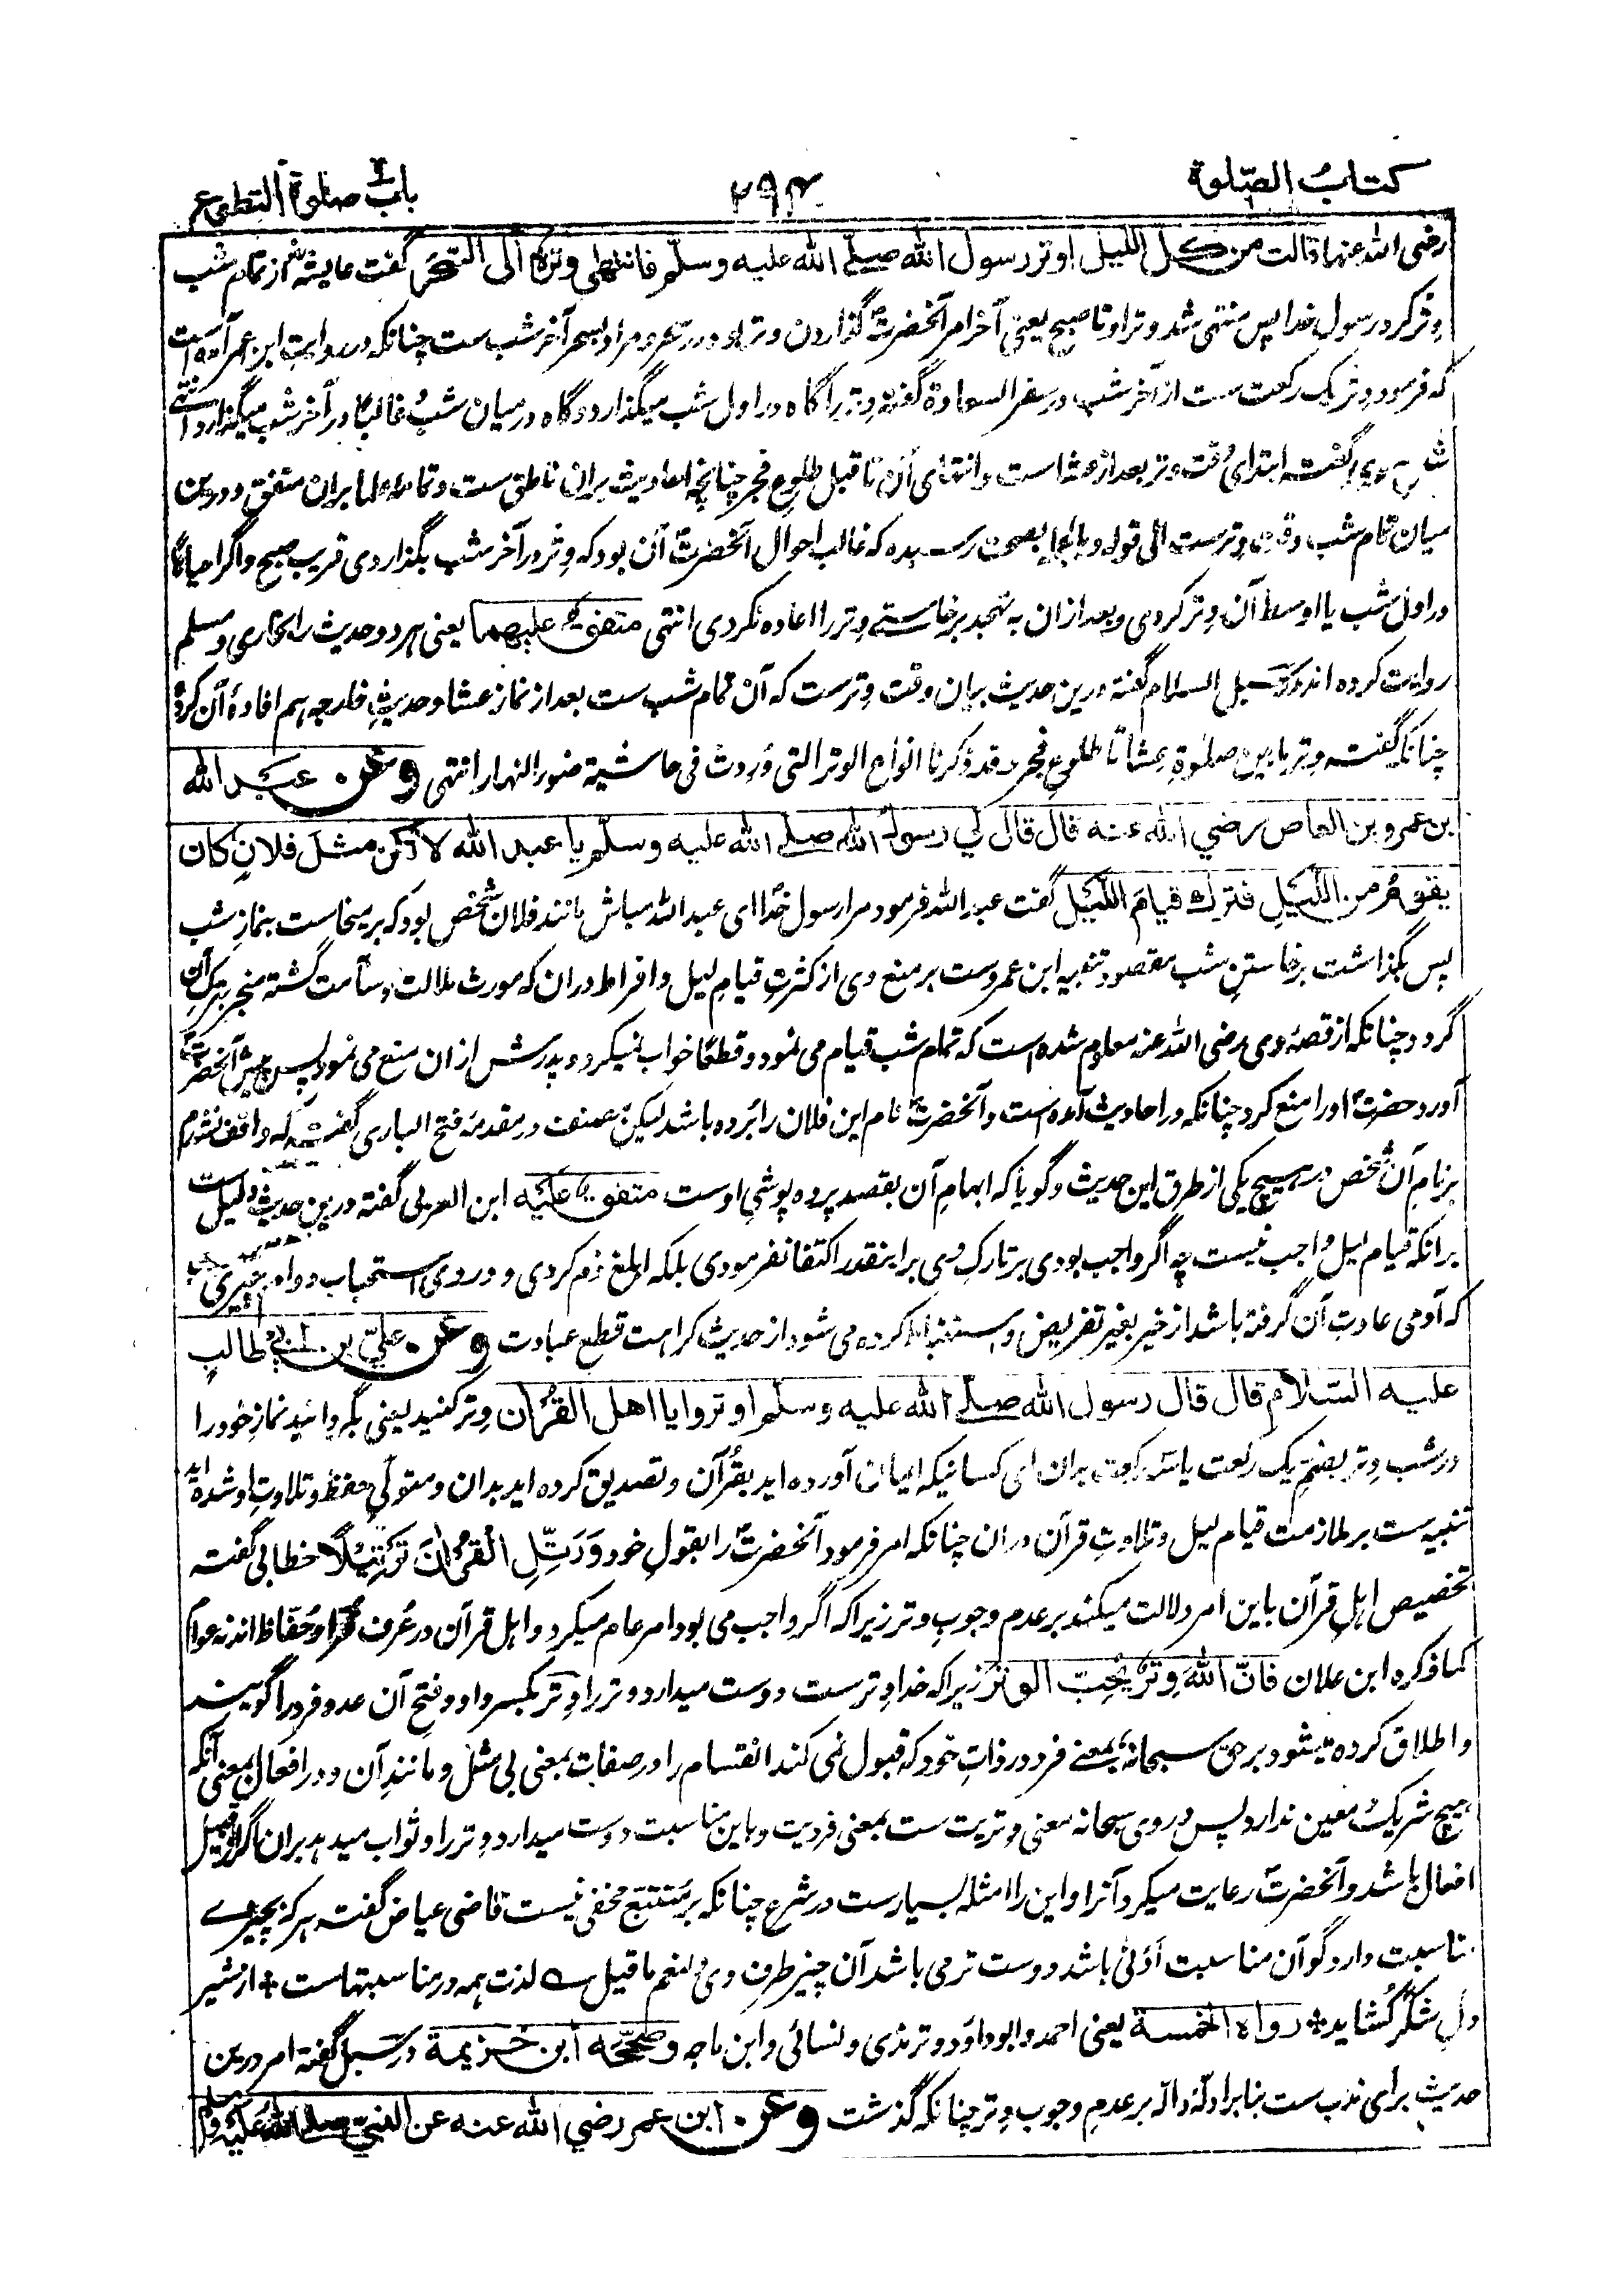 کتاب الصلوة
۲۹۴
باب صلوة التطوع
رضی الله عنها قالت من کل اللیل اوتر رسول الله صلی الله علیه وسلم فانتهی وتره الی السحر گفت عایشه از تمام شب
وتر کرد رسول خدا پس منتهی شد وتر او تا صبح یعنی آخر امر آنحضرت گذاردن وتر بود در سحر و مراد بسحر آخر شب ست چنانکه در روایت ابن عمر آمده است
که فرمود وتر یک رکعت ست از آخر شب و در سفر السعادة گفته وتر را گاه در اول شب میگذارد و گاه در میان شب و غالبا در آخر شب میگذارد انتهی
گفته ابتدای وقت وتر بعد از عشا است و انتهای آن تا قبل طلوع فجر چنانچه احادیث بران ناطق ست و تمامه علما بران متفق و درین
میان تمام شب وقت وتر ست الی قوله و بصحت رسیده که غالب احوال آنحضرت آن بود که وتر در آخر شب بگذاردی قریب صبح و اگر احیانا
در اول شب یا اوسط آن وتر کردی و بعد ازان به تهجد برخاستے وتر را اعاده نکردی انتهی متفق علیهما یعنی هر دو حدیث را بخاری و مسلم
روایت کرده اند و در سبل السلام گفته درین حدیث بیان وقت وتر ست که آن تمام شب ست بعد از نماز عشا و حدیث خارجه هم افادهٔ آن کرده
چنانکه گفت وتر ما بین صلوة عشا تا طلوع فجر و قد ذکرنا انواع الوتر التی وردت فی حاشیة ضوء النهار انتهی وعن عبد الله
بن عمرو بن العاص رضي الله عنه قال قال لي رسول الله صلے الله علیه وسلم یا عبد الله لا تکن مثل فلان کان
یقوم من اللیل فترك قیام اللیل گفت عبد الله فرمود مرا رسول خدا ای عبد الله مباش مانند فلان شخص بود که برمیخاست بنماز شب
پس بگذاشت برخاستن شب مقصود تنبیه ابن عمرو ست بر منع وی از کثرت قیام لیل و افراط دران که مورث ملالت و سآمت گشته منجر بترک آن
گردد چنانکه از قصهٔ وی رضی الله عنه معلوم شده است که تمام شب قیام می نمود و قطعا خواب نمیکرد و پدرش ازان منع می نمود پس پیش آنحضرت
آورد حضرت او را منع کرد چنانکه در احادیث آمده است و آنحضرت نام این فلان را برده باشد لیکن مصنف در مقدمهٔ فتح الباری گفته که واقف نشدم
بر نام آن شخص در هیچ یکی از طرق این حدیث و گویا که ابهام آن بقصد پرده پوشی اوست متفق علیه ابن العربی گفته درین حدیث دلیل ست
برانکه قیام لیل واجب نیست چه اگر واجب بودی بر تارک وی براینقدر اکتفا نفرمودی بلکه ابلغ ذم کردی و در وی استحباب دوام چیزی
که آدمی عادت آن گرفته باشد از خیر بغیر تفریض و استنباط کرده می شود از حدیث کراهت قطع عبادت وعن علي بن ابي طالب
علیه السلام قال قال رسول الله صلے الله علیه وسلم اوتروا یا اهل القرآن وتر کنید یعنی بگردانید نماز خود را
در شب وتر بضم یک رکعت یا سه رکعت بران ای کسانیکه ایمان آورده اید بقرآن و تصدیق کرده اید بدان و متولی حفظ و تلاوت او شده اید
تنبیه ست بر ملازمت قیام لیل و تلاوت قرآن دران چنانکه امر فرمود آنحضرت را بقول خود وَرَتِّلِ الْقُرْآنَ تَرْتِيلًا خطابی گفته
تخصیص اهل قرآن باین امر دلالت میکند بر عدم وجوب وتر زیراکه اگر واجب می بود امر عام میکرد و اهل قرآن در عرف قرا و حفاظ اند نه عوام
کما ذکره ابن علان فانّ الله وتر یحب الوتر زیراکه خدا وتر ست دوست میدارد وتر را وتر بکسر واو و فتح آن عدد فرد را گویند
و اطلاق کرده میشود بر حق سبحانه بمعنے فرد در ذات خود که قبول نمی کند انقسام را و در صفات بمعنی بی مثل و مانند آن و در افعال بمعنی آنکه
هیچ شریک معین ندارد پس در وی سبحانه معنی وتریت ست بمعنی فردیت و باین مناسبت دوست میدارد وتر را و ثواب میدهد بران اگر از قبیل
افعال باشد و آنحضرت رعایت میکرد آنرا و این را امثله بسیار ست در شرع چنانکه بر متتبع مخفی نیست قاضی عیاض گفته هر که بچیزے
مناسبت دارد گو آن مناسبت ادنی باشد دوست تر می باشد آن چیز طرف وی و لنعم ما قیل ے لذت همه در مناسبتهاست * از شیر
دل شکر گشاید * رواه الخمسة یعنی احمد و ابو داود و ترمذی و نسائی و ابن ماجه وصححه ابن خزیمة در سبل گفته امر درین
حدیث برای ندب ست بنابر ادلهٔ داله بر عدم وجوب وتر چنانکه گذشت وعن ابن عمر رضي الله عنه عن النبي صلے الله علیه وسلم